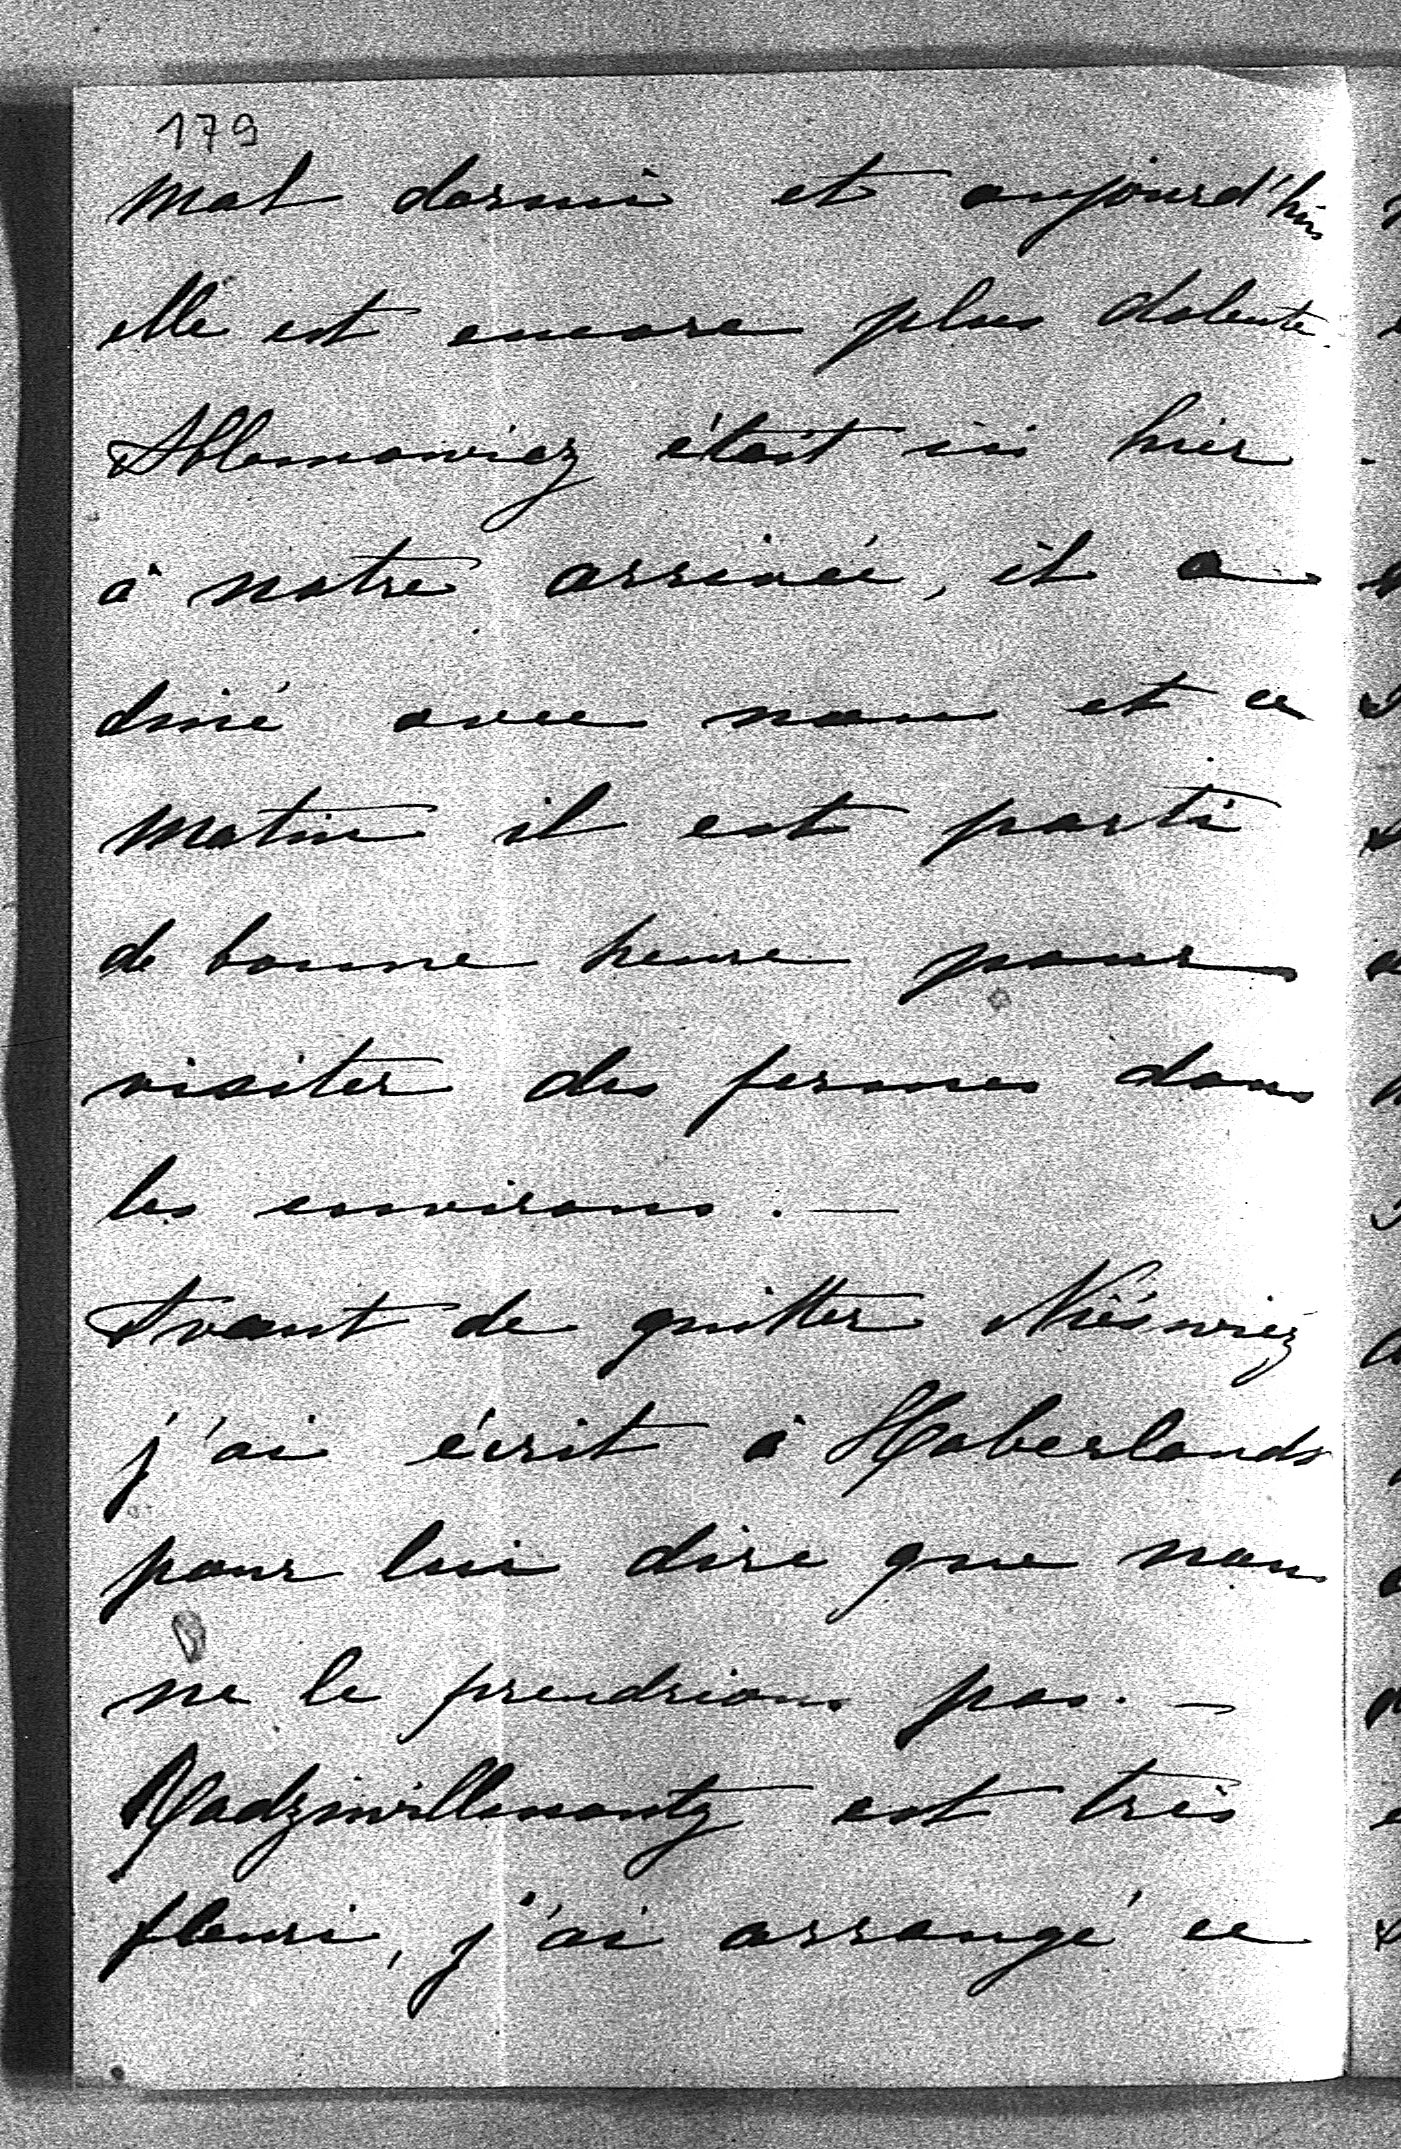 179
mal dormi et aujourd'hui
elle est encore plus dolente.
Ablamowicz était ici hier
à notre arrivée, il a
diné avec nous et ce
matin il est parti
de bonne heure pour
visiter des fermes dans
les environs. —
Avant de quitter Nieśwież
j'ai écrit à Haberlands
pour lui dire que nous
ne le prendrions pas. —
Radziwillmonty est très
fleuri, j'ai arrangé ce